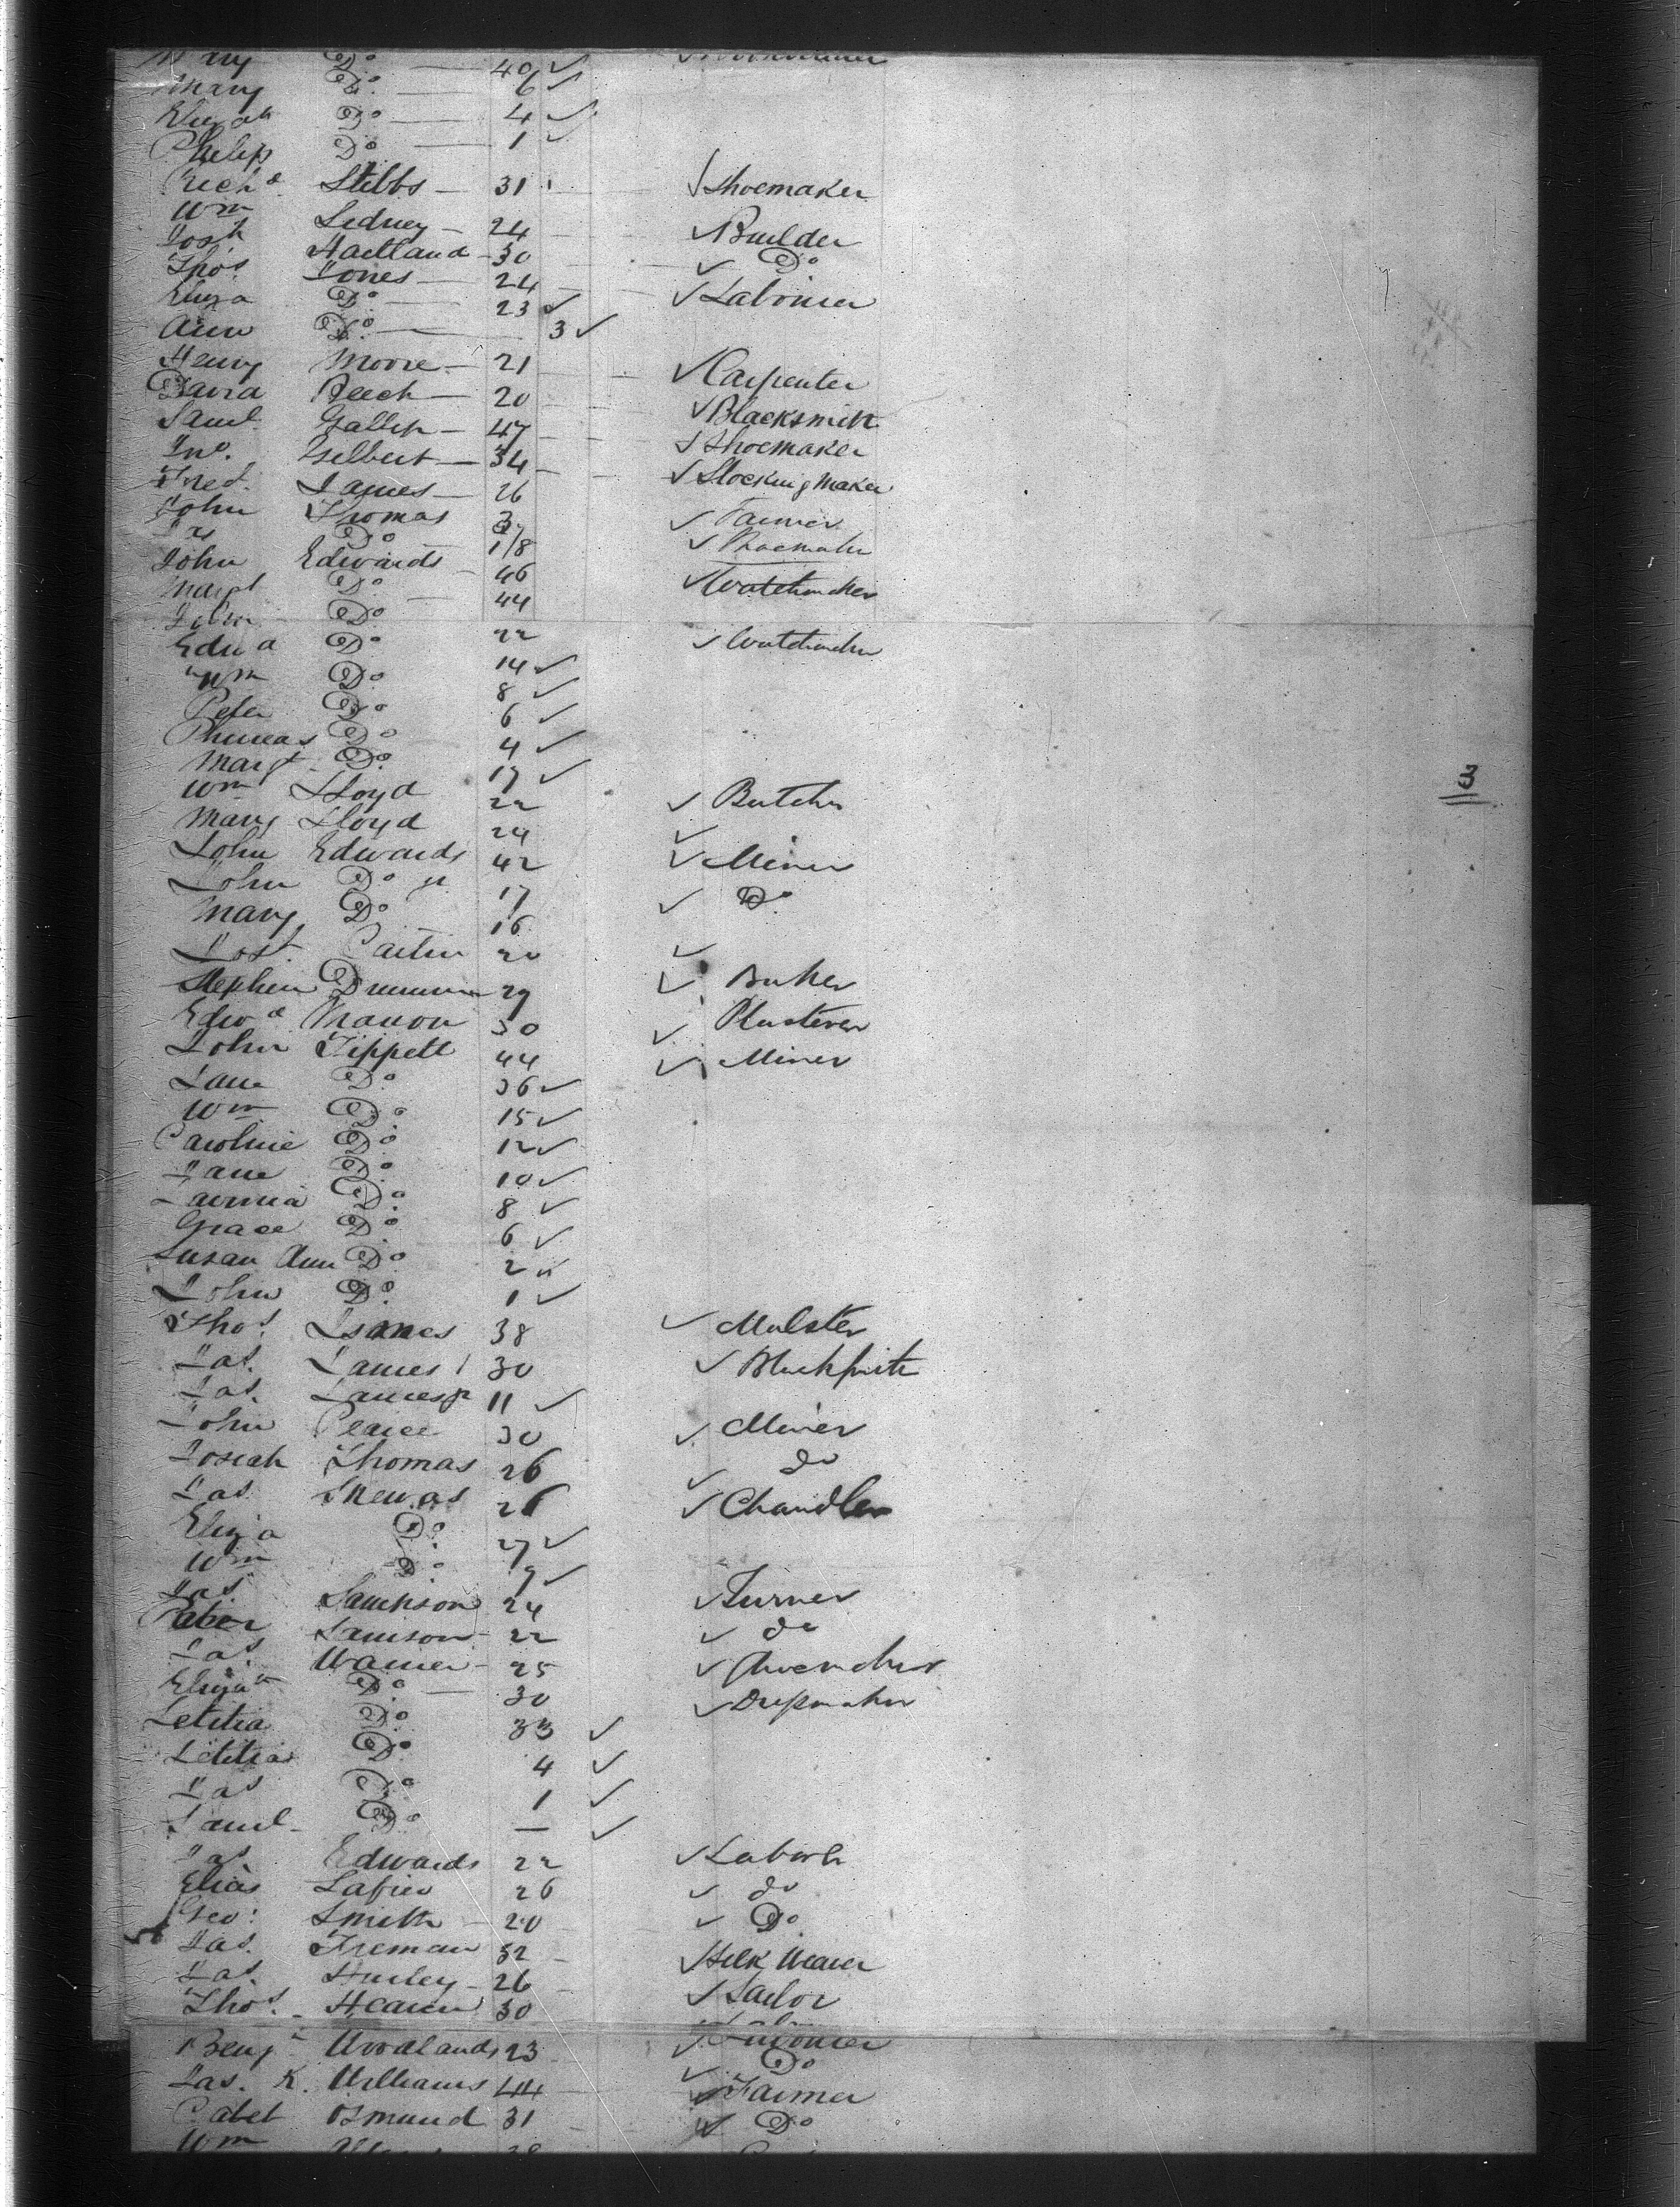 Mary Do 40
Mary Do 6
Elizath Do 4
Philip Do 1
Richd Stibbs 31 Shoemaker
Wm Sidney 24 Builder
Josh Hartland 30 Do
Thos Jones 24 Labourer
Eliza Do 23
Ann Do 3
Henry Moore 21 Carpenter
David Beech 20 Blacksmith
Saml Gallop 47 Shoemaker
Jno. Gilbert 34 Shoemaker
Fred. James 26 Stocking Maker
John Thomas Farmer
Jas Do 18 Shoemaker
John Edwards 46 Watchmaker
Margt Do 44
John Do 22 Watchmaker
Edwd Do 14
Wm Do 8
Peter Do 6
Phineas Do 4
Margt Do 17
3
Wm Lloyd 22 Butcher
Mary Lloyd 24
John Edwards 42 Miner
John Do jr 17 Do
Mary Do 16
Josh. Carter 20
Stephen 29 Baker
Edwd 30 Plasterer
John Tippett 44 Miner
Jane Do 36
Wm Do 15
Caroline Do 12
Jane Do 10
Lavinia Do 8
Grace Do 6
Susan Ann Do 2
John Do 1
Thos. 38 Malster
Jas. James 30 Blacksmith
Jas. James jr 11
John Pearce 30 Miner
Josiah Thomas 26 do
Jas. Skewas 26 Chandler
Eliza Do 27
Wm Do 9
Jas. Sampson 24 Turner
Samson 22 do
Jas. Warner 25 Shoemaker
Elizath Do 30 Dressmaker
Letitia Do 33
Letitia Do 4
Jas Do 1
Saml Do —
Jas Edwards 22 Laborer
Elias 26 do
Geo: Smith 20 Do
Jas. Freeman 32 Silk Weaver
Jas. Hurley 26 Sailor
Thos. 30 Labourer
Benjn Woodlands 23 Do
Jas. K. Williams 44 Farmer
Osmund 31 Do
Wm